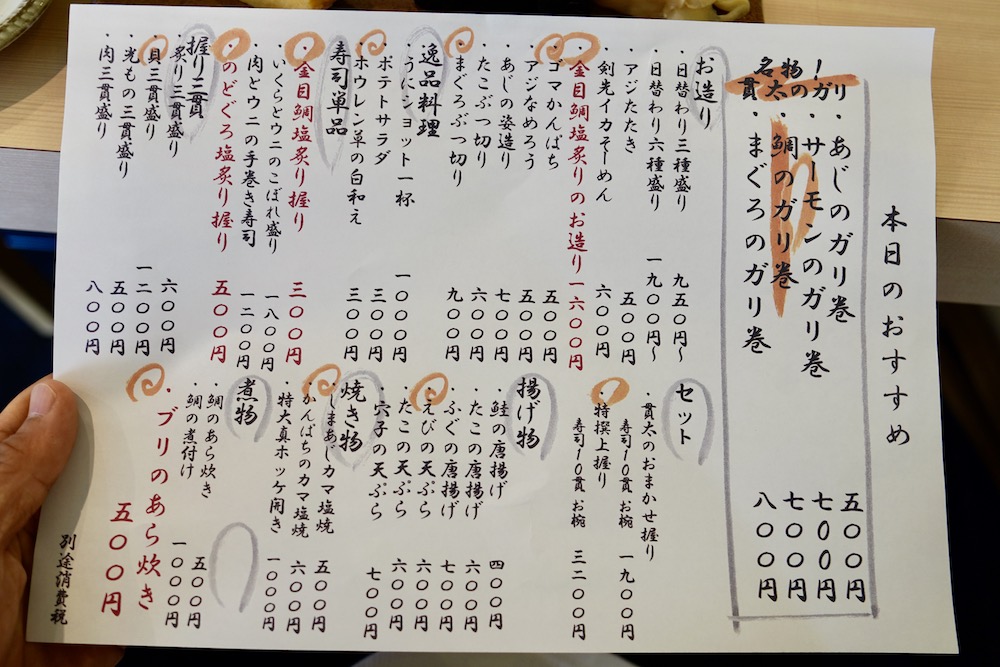 本日のおすすめ
名物!
貫太のガリ
・あじのガリ巻 五〇〇円
・サーモンのガリ巻 七〇〇円
・鯛のガリ巻 七〇〇円
・まぐろのガリ巻 八〇〇円
お造り
・日替わり三種盛り 九五〇円~
・日替わり六種盛り 一九〇〇円~
・アジたたき 五〇〇円
・剣先イカそーめん 六〇〇円
・金目鯛塩炙りのお造り 一六〇〇円
・ゴマかんぱち 五〇〇円
・アジなめろう 五〇〇円
・あじの姿造り 七〇〇円
・たこぶつ切り 六〇〇円
・まぐろぶつ切り 九〇〇円
逸品料理
・うにショット一杯 一〇〇〇円
・ポテトサラダ 三〇〇円
・ホウレン草の白和え 三〇〇円
寿司単品
・金目鯛塩炙り握り 三〇〇円
・いくらとウニのこぼれ盛り 一八〇〇円
・肉とウニの手巻き寿司 一二〇〇円
・のどぐろ塩炙り握り 五〇〇円
握り三貫
・炙り三貫盛り 六〇〇円
・貝三貫盛り 一二〇〇円
・光もの三貫盛り 五〇〇円
・肉三貫盛り 八〇〇円
セット
・貫太のおまかせ握り
寿司10貫 お椀 一九〇〇円
・特撰上握り
寿司10貫 お椀 三二〇〇円
揚げ物
・鮭の唐揚げ 四〇〇円
・たこの唐揚げ 六〇〇円
・ふぐの唐揚げ 七〇〇円
・えびの天ぷら 六〇〇円
・たこの天ぷら 六〇〇円
・穴子の天ぷら 七〇〇円
焼き物
・しまあじカマ塩焼 五〇〇円
・かんぱちのカマ塩焼 六〇〇円
・特大真ホッケ開き 一〇〇〇円
煮物
・鯛のあら炊き 五〇〇円
・鯛の煮付け 一〇〇〇円
・ブリのあら炊き 五〇〇円
別途消費税